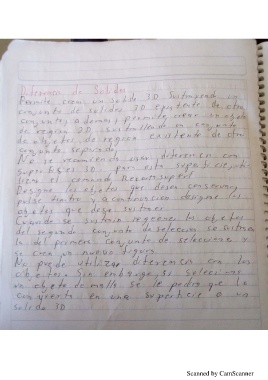 Diferencia de Solidos
Permite crear un solido 3D sustrayendo un
conjunto de solidos 3D existente de otro
conjunto, a demas permite crear un objeto
de region 2D sustrallendo un conjunto
de objetos de region existente de otro
conjunto separado.
No se recomienda usar diferencia con
superficies 3D por superficie, uti
liza el comando
Designe los objetos que desea conservar,
pulse Enter y a continuacion designe los
objetos que desea sustraer.
Cuando se sustrae regiones los objetos
del segundo conjunto de seleccion se sustra
en del primer conjunto de seleccion y
se crea un nuevo
No puede utilizar diferencia con los
objetos. Sin embargo, si selecciona
un objeto de malla se le pedira que lo
convierta en una superficie o un
solido 3D
Scanned by CamScanner